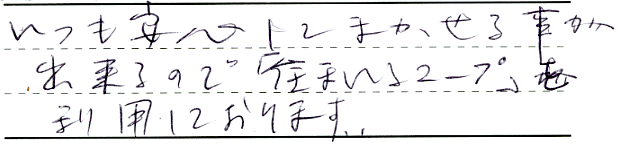 いつも安心してまかせる事が
出来るので「住まいるコープ」を
利用しております。